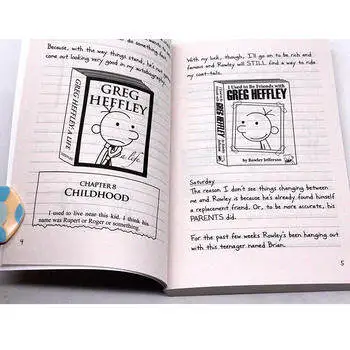 do something
Because, with the way things stand, he's not
come out looking very good in my autobiography
GREG
HEFFLEY
GREG HEFFLEY: A LIFE
a life
CHAPTER 8
CHILDHOOD
I used to live near this kid, I think his
name was Rupert or Roger or something.
4
With my luck, though, I'll go on to be rich and
famous and Rowley will STILL find a way to ride
my coat-tails.
I Used to Be Friends with
GREG HEFFLEY
GREG HEFFLEY
by Rowley Jefferson
Saturday
The reason I don't see things changing between
me and Rowley is because he's already found himself
a replacement friend. Or, to be more accurate, his
PARENTS did.
For the past few weeks Rowley's been hanging out
with this teenager named Brian.
5